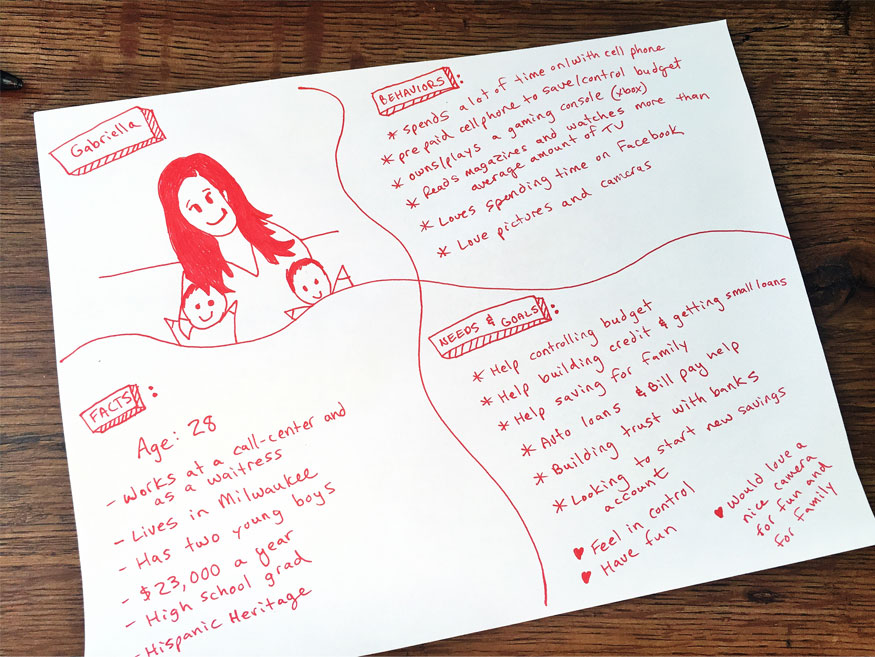 Gabriella
BEHAVIORS:
* Spends a lot of time on/with cell phone
* prepaid cellphone to save/control budget
* owns/plays a gaming console (xbox)
* Reads magazines and watches more than
average amount of TV
* Loves spending time on Facebook
* Love pictures and cameras
FACTS:
Age: 28
- Works at a call-center and
as a waitress
- Lives in Milwaukee
- Has two young boys
- $23,000 a year
- High school grad
- Hispanic Heritage
NEEDS & GOALS:
* Help controlling budget
* Help building credit & getting small loans
* Help saving for family
* Auto loans & Bill pay help
* Building trust with banks
* Looking to start new savings
account
♥ Feel in control
♥ Have fun
♥ Would love a
nice camera
for fun and
for family